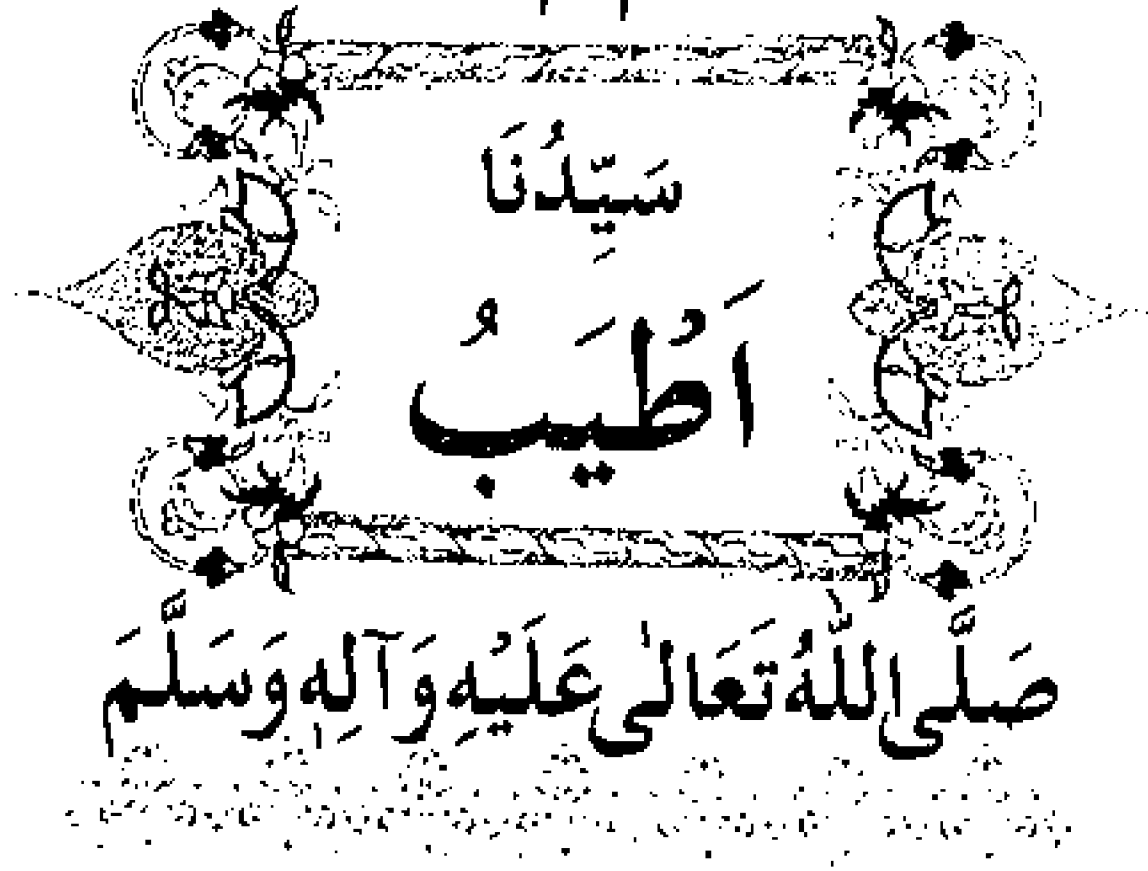 سَيِّدُنَا
اَطْيَبُ
صَلَّى اللّٰهُ تَعَالٰى عَلَيْهِ وَآلِهِ وَسَلَّمَ